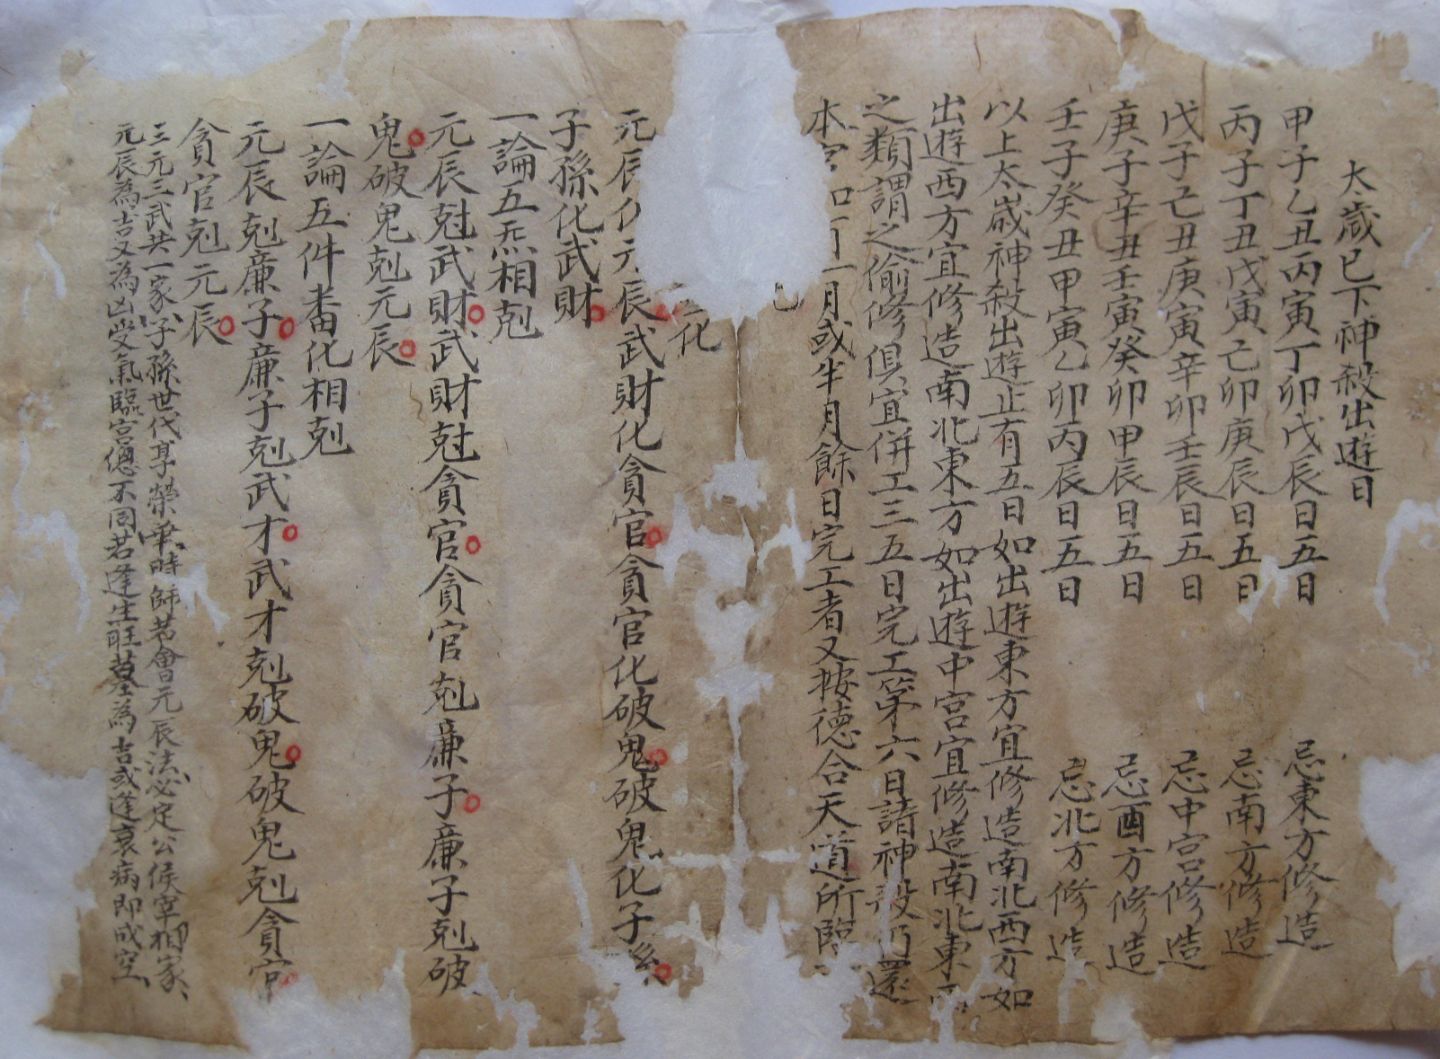 太歲已下神殺出遊日
甲子乙丑丙寅丁卯戊辰日五日 忌東方修造
丙子丁丑戊寅己卯庚辰日五日 忌南方修造
戊子己丑庚寅辛卯壬辰日五日 忌中宮修造
庚子辛丑壬寅癸卯甲辰日五日 忌酉方修造
壬子癸丑甲寅乙卯丙辰日五日 忌北方修造
以上太歲神殺出遊止有五日如出遊東方宜修造南北西方如
出遊西方宜修造南北東方如出遊中宮宜修造南北東西
之類謂之偷修俱宜併工三五日完工第六日請神殺仍還
本宮如 月或半月餘日完工者又按德合天道所臨
化
元辰化元辰武財化貪官貪官化破鬼破鬼化子孫
子孫化武財
一論五炁相剋
元辰尅武財武財尅貪官貪官剋廉子廉子剋破
鬼破鬼剋元辰
一論五件畨化相剋
元辰剋廉子廉子剋武才武才剋破鬼破鬼剋貪官
貪官剋元辰
三元三武共一家子孫世代享榮華時師若會元辰法必定公侯宰相家
元辰為吉又為凶受氣臨宮總不同若逢生旺墓為吉或逢衰病即成空